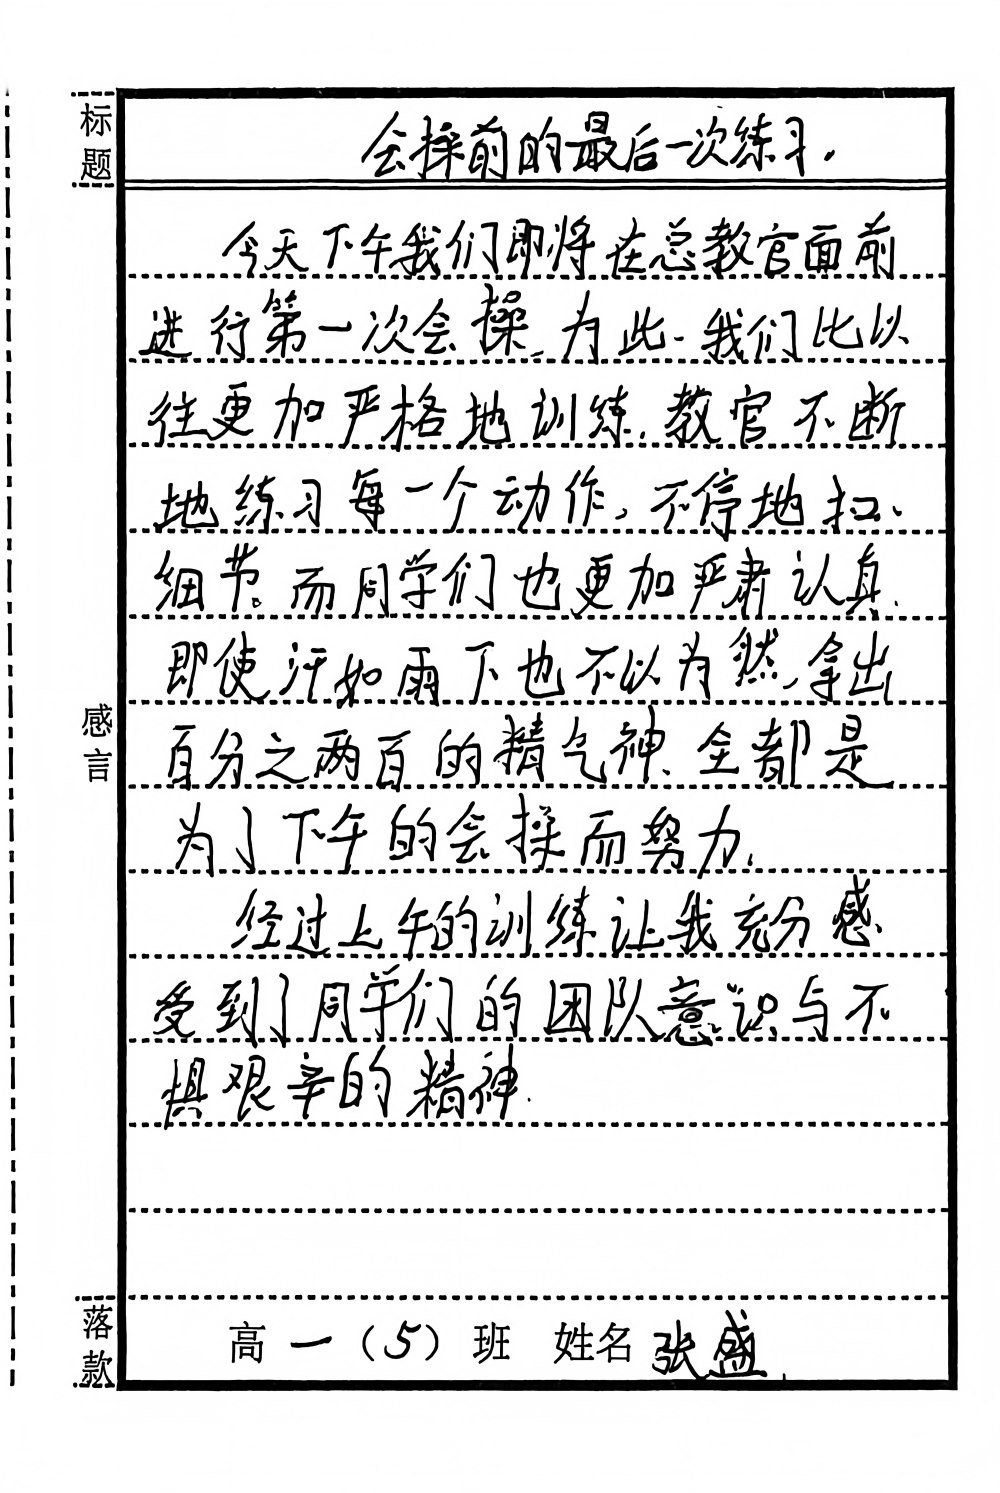 标题
会操前的最后一次练习.
今天下午我们即将在总教官面前
进行第一次会操,为此、我们比以
往更加严格地训练,教官不断
地练习每一个动作,不停地扣、
细节。而同学们也更加严肃认真.
即使汗如雨下也不以为然,拿出
百分之两百的精气神、全都是
为了下午的会操而努力.
经过上午的训练让我充分感
受到了同学们的团队意识与不
惧艰辛的精神.
感言
落款
高一(5)班 姓名 张盛